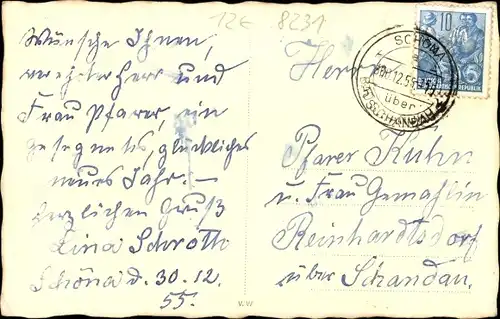 12€ 8231
Wünsche Ihnen,
verehrter Herr und
Frau Pfarrer, ein
gesegnetes, glückliches
neues Jahr. –
Herzlichen Gruß
Lina Schrott
Schöna d. 30.12.
55.
Herrn
Pfarrer Kühn
u. Frau Gemahlin
Reinhardtsdorf
über Schandau.
SCHÖNA
30.12.55
über
BAD SCHANDAU
10
DEUTSCHE
REPUBLIK
V.W